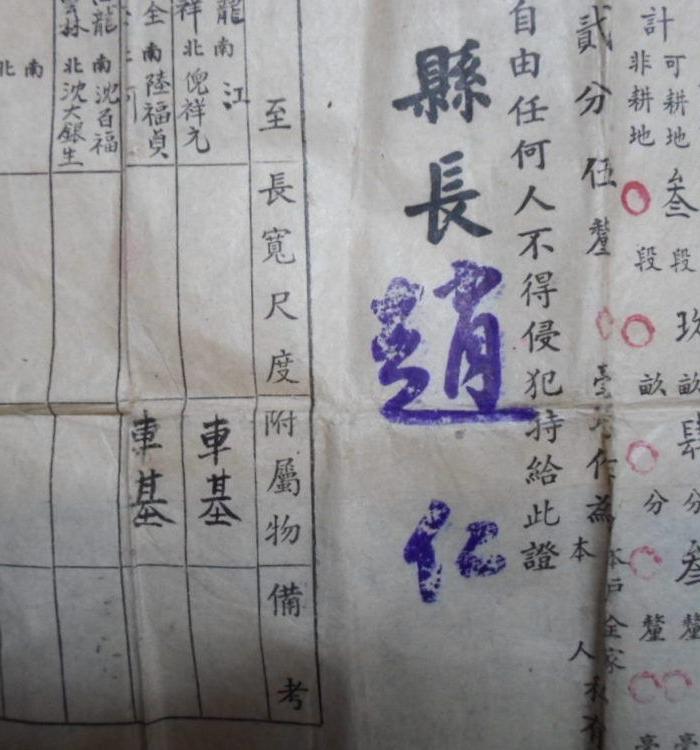 計
可耕地叁段玖畝肆分叁釐
非耕地〇段〇畝〇分〇釐
貳分伍釐
為
本戶全家
本人
自由任何人不得侵犯特給此證
縣長趙仁
至
長寬尺度
附屬物
備考
龍
南江
祥
北倪祥元
車基
南陸福貞
車基
龍
南沈百福
林
北沈大銀生
南
北